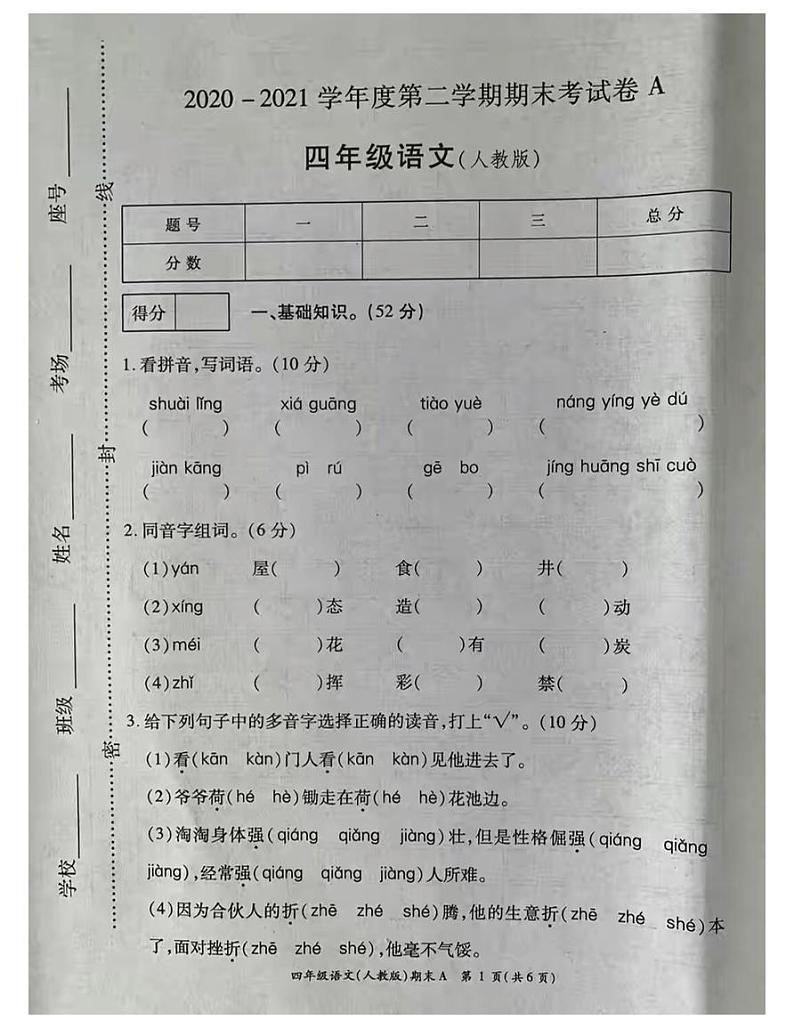 2020－2021 学年度第二学期期末考试卷 A
四年级语文(人教版)
题号 一 二 三 总分
分数
得分 一、基础知识。(52 分)
1. 看拼音,写词语。(10 分)
shuài lǐng xiá guāng tiào yuè náng yíng yè dú
( ) ( ) ( ) ( )
jiàn kāng pì rú gē bo jíng huāng shī cuò
( ) ( ) ( ) ( )
2. 同音字组词。(6 分)
(1)yán 屋( ) 食( ) 井( )
(2)xíng ( )态 造( ) ( )动
(3)méi ( )花 ( )有 ( )炭
(4)zhǐ ( )挥 彩( ) 禁( )
3. 给下列句子中的多音字选择正确的读音,打上“√”。(10 分)
(1)看(kān kàn)门人看(kān kàn)见他进去了。
(2)爷爷荷(hé hè)锄走在荷(hé hè)花池边。
(3)淘淘身体强(qiáng qiǎng jiàng)壮,但是性格倔强(qiáng qiǎng
jiàng),经常强(qiáng qiǎng jiàng)人所难。
(4)因为合伙人的折(zhē zhé shé)腾,他的生意折(zhē zhé shé)本
了,面对挫折(zhē zhé shé),他毫不气馁。
四年级语文(人教版)期末A 第 1 页(共 6 页)
学校 班级 姓名 考场 座号
密 封 线